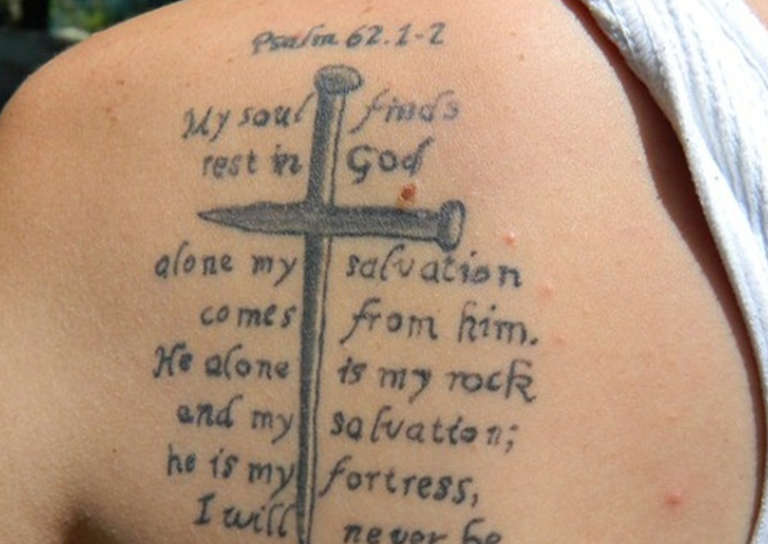 Psalm 62.1-2
My soul finds
rest in God
alone my salvation
comes from him.
He alone is my rock
and my salvation;
he is my fortress,
I will never be